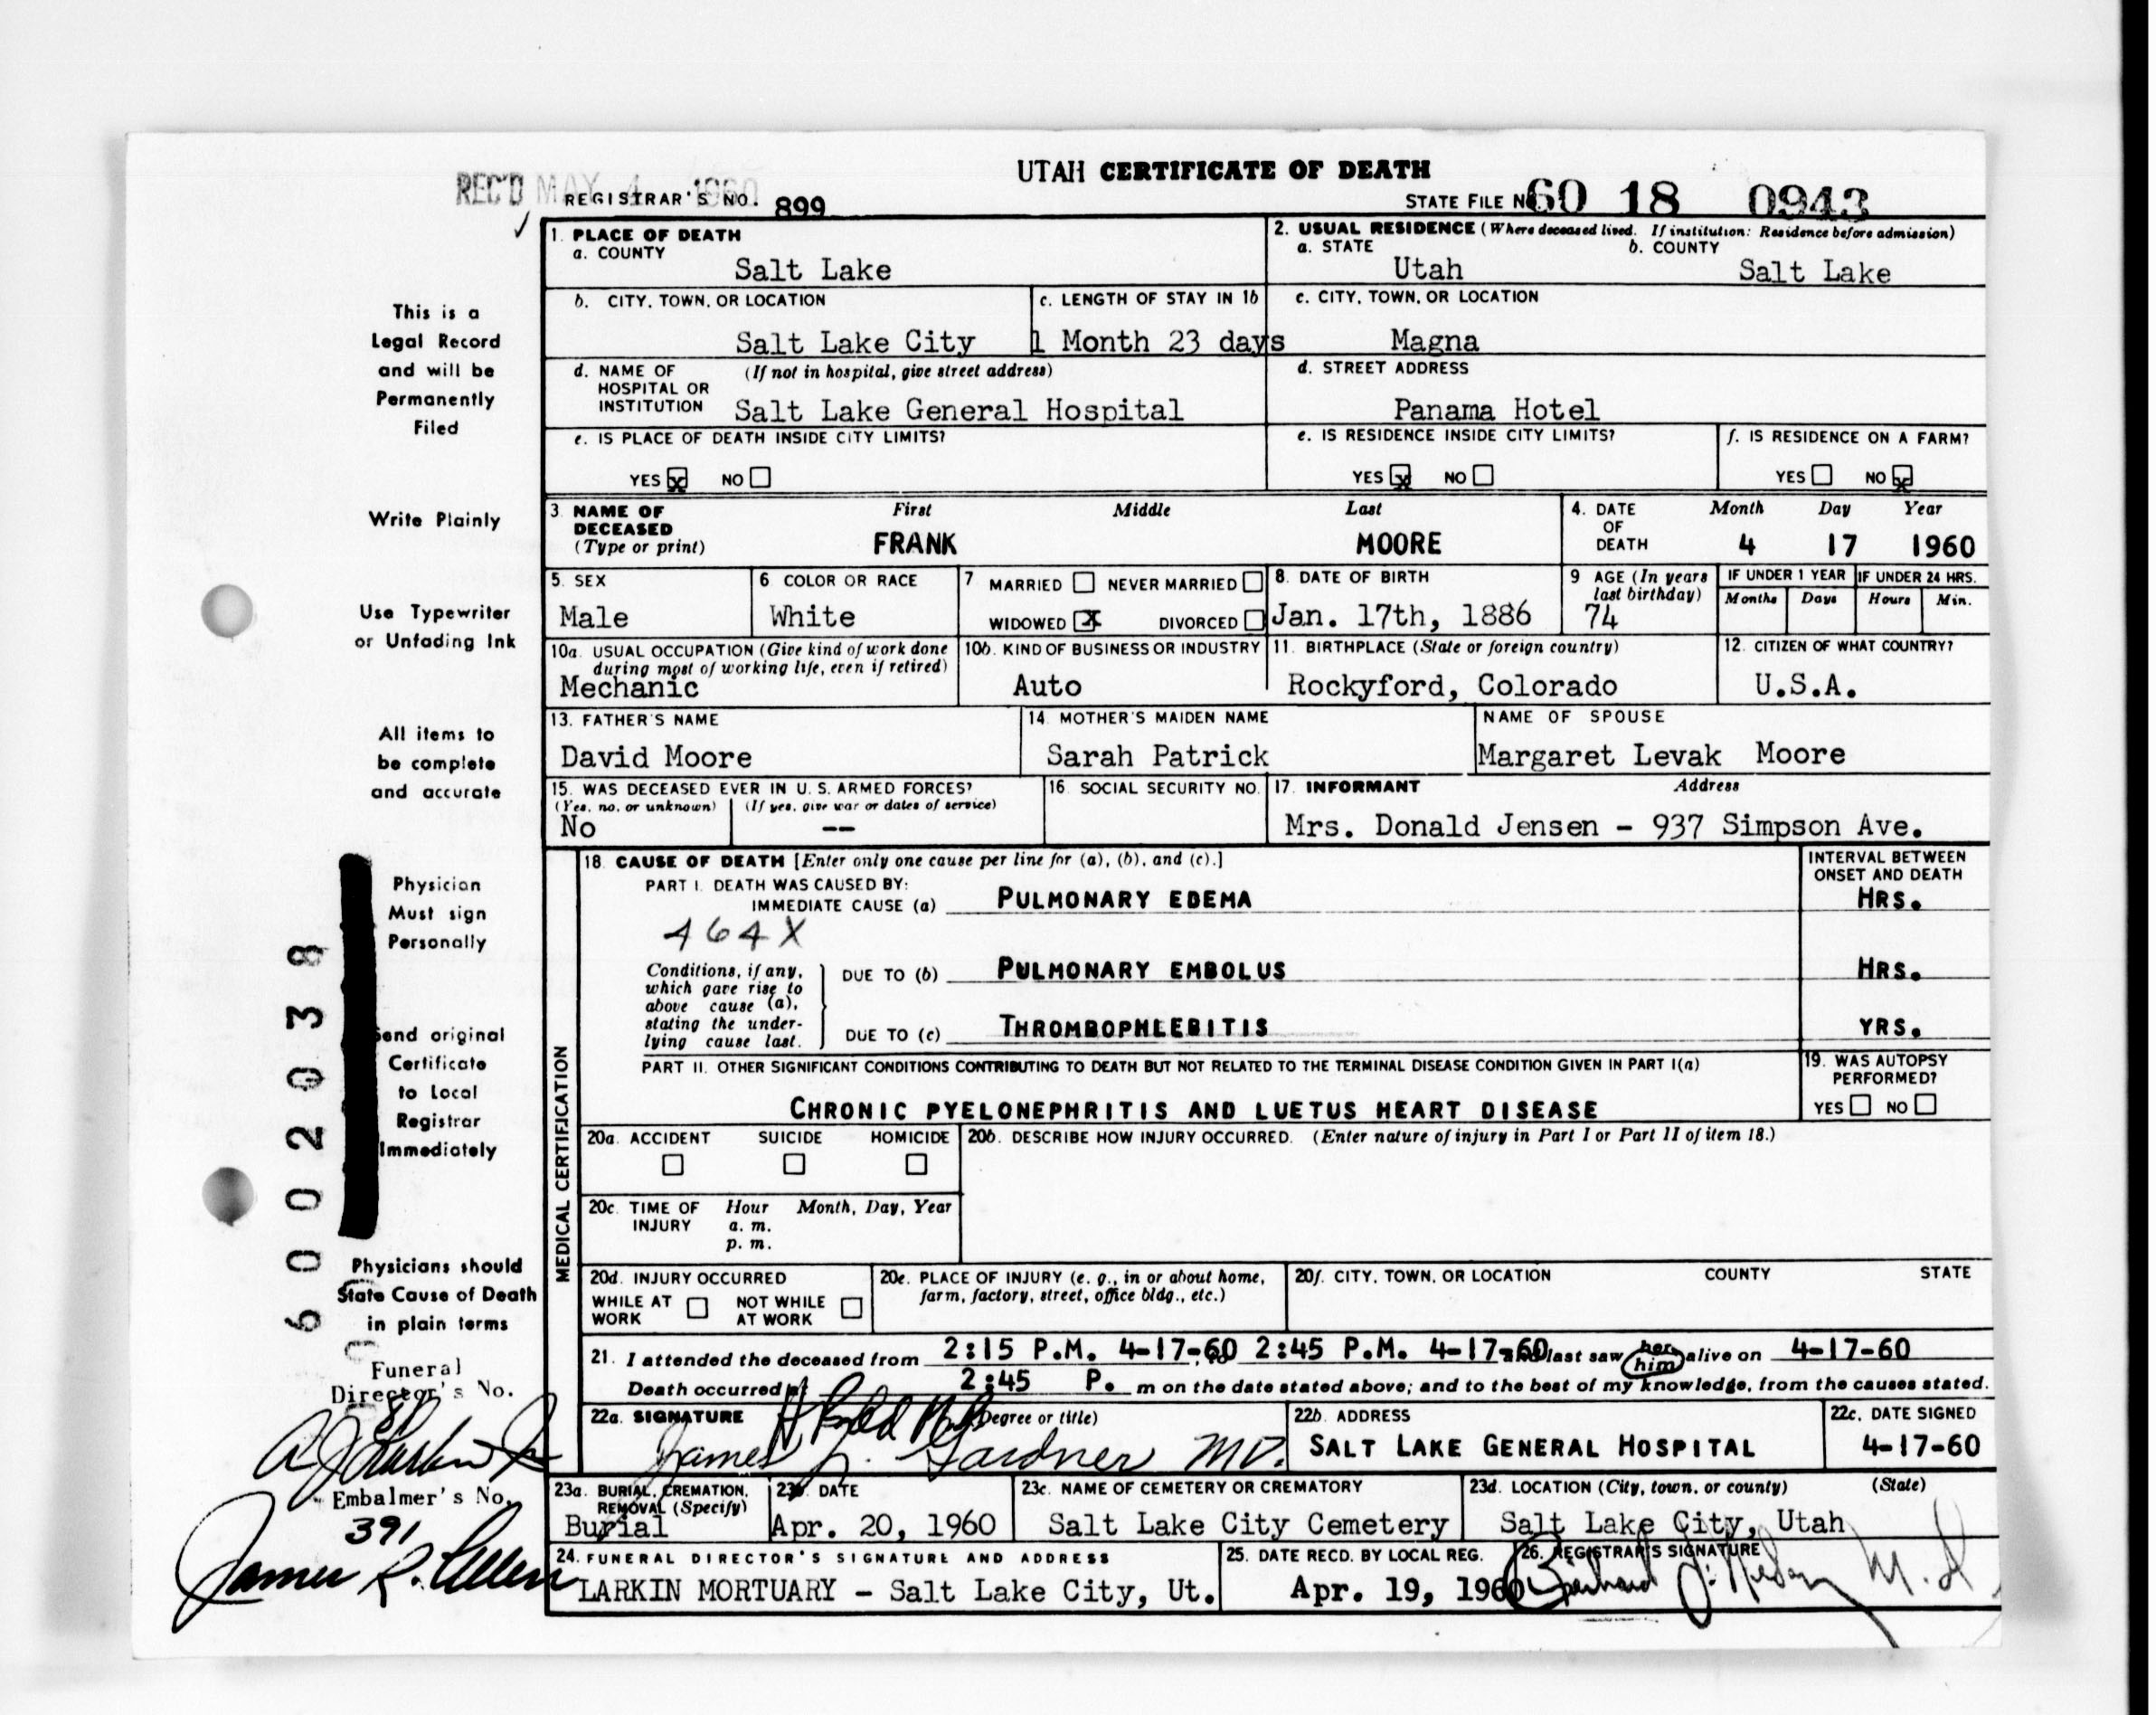 UTAH CERTIFICATE OF DEATH
REC'D MAY 4 1960
REGISTRAR'S NO. 899
STATE FILE NO. 60 18 0943
1. PLACE OF DEATH
a. COUNTY
Salt Lake
2. USUAL RESIDENCE (Where deceased lived. If institution: Residence before admission)
a. STATE b. COUNTY
Utah Salt Lake
b. CITY, TOWN, OR LOCATION
Salt Lake City
c. LENGTH OF STAY IN 1b
1 Month 23 days
c. CITY, TOWN, OR LOCATION
Magna
d. NAME OF (If not in hospital, give street address)
HOSPITAL OR
INSTITUTION Salt Lake General Hospital
d. STREET ADDRESS
Panama Hotel
e. IS PLACE OF DEATH INSIDE CITY LIMITS?
YES X NO
e. IS RESIDENCE INSIDE CITY LIMITS?
YES X NO
f. IS RESIDENCE ON A FARM?
YES NO X
3. NAME OF DECEASED (Type or print)
First Middle Last
FRANK MOORE
4. DATE OF DEATH
Month Day Year
4 17 1960
5. SEX
Male
6. COLOR OR RACE
White
7. MARRIED NEVER MARRIED
WIDOWED X DIVORCED
8. DATE OF BIRTH
Jan. 17th, 1886
9. AGE (In years last birthday)
74
IF UNDER 1 YEAR
Months Days
IF UNDER 24 HRS.
Hours Min.
10a. USUAL OCCUPATION (Give kind of work done
during most of working life, even if retired)
Mechanic
10b. KIND OF BUSINESS OR INDUSTRY
Auto
11. BIRTHPLACE (State or foreign country)
Rockyford, Colorado
12. CITIZEN OF WHAT COUNTRY?
U.S.A.
13. FATHER'S NAME
David Moore
14. MOTHER'S MAIDEN NAME
Sarah Patrick
NAME OF SPOUSE
Margaret Levak Moore
15. WAS DECEASED EVER IN U. S. ARMED FORCES?
(Yes, no, or unknown) (If yes, give war or dates of service)
No --
16. SOCIAL SECURITY NO.
17. INFORMANT Address
Mrs. Donald Jensen - 937 Simpson Ave.
MEDICAL CERTIFICATION
18. CAUSE OF DEATH [Enter only one cause per line for (a), (b), and (c).]
INTERVAL BETWEEN
ONSET AND DEATH
PART I. DEATH WAS CAUSED BY:
IMMEDIATE CAUSE (a) PULMONARY EDEMA HRS.
464X
Conditions, if any,
which gave rise to
above cause (a),
stating the under-
lying cause last.
DUE TO (b) PULMONARY EMBOLUS HRS.
DUE TO (c) THROMBOPHLEBITIS YRS.
PART II. OTHER SIGNIFICANT CONDITIONS CONTRIBUTING TO DEATH BUT NOT RELATED TO THE TERMINAL DISEASE CONDITION GIVEN IN PART I(a)
CHRONIC PYELONEPHRITIS AND LUETUS HEART DISEASE
19. WAS AUTOPSY
PERFORMED?
YES NO
20a. ACCIDENT SUICIDE HOMICIDE
20b. DESCRIBE HOW INJURY OCCURRED. (Enter nature of injury in Part I or Part II of item 18.)
20c. TIME OF INJURY
Hour Month, Day, Year
a. m.
p. m.
20d. INJURY OCCURRED
WHILE AT WORK NOT WHILE AT WORK
20e. PLACE OF INJURY (e. g., in or about home,
farm, factory, street, office bldg., etc.)
20f. CITY, TOWN, OR LOCATION COUNTY STATE
21. I attended the deceased from 2:15 P.M. 4-17-60 to 2:45 P.M. 4-17-60 and last saw her him alive on 4-17-60
Death occurred at 2:45 P. m on the date stated above; and to the best of my knowledge, from the causes stated.
22a. SIGNATURE (Degree or title)
James L. Gardner MD.
22b. ADDRESS
SALT LAKE GENERAL HOSPITAL
22c. DATE SIGNED
4-17-60
23a. BURIAL, CREMATION,
REMOVAL (Specify)
Burial
23b. DATE
Apr. 20, 1960
23c. NAME OF CEMETERY OR CREMATORY
Salt Lake City Cemetery
23d. LOCATION (City, town, or county) (State)
Salt Lake City, Utah
24. FUNERAL DIRECTOR'S SIGNATURE AND ADDRESS
LARKIN MORTUARY - Salt Lake City, Ut.
25. DATE RECD. BY LOCAL REG.
Apr. 19, 1960
26. REGISTRAR'S SIGNATURE
This is a
Legal Record
and will be
Permanently
Filed
Write Plainly
Use Typewriter
or Unfading Ink
All items to
be complete
and accurate
Physician
Must sign
Personally
Send original
Certificate
to Local
Registrar
Immediately
6002038
Physicians should
State Cause of Death
in plain terms
Funeral
Director's No.
Embalmer's No.
391
James R. Allen